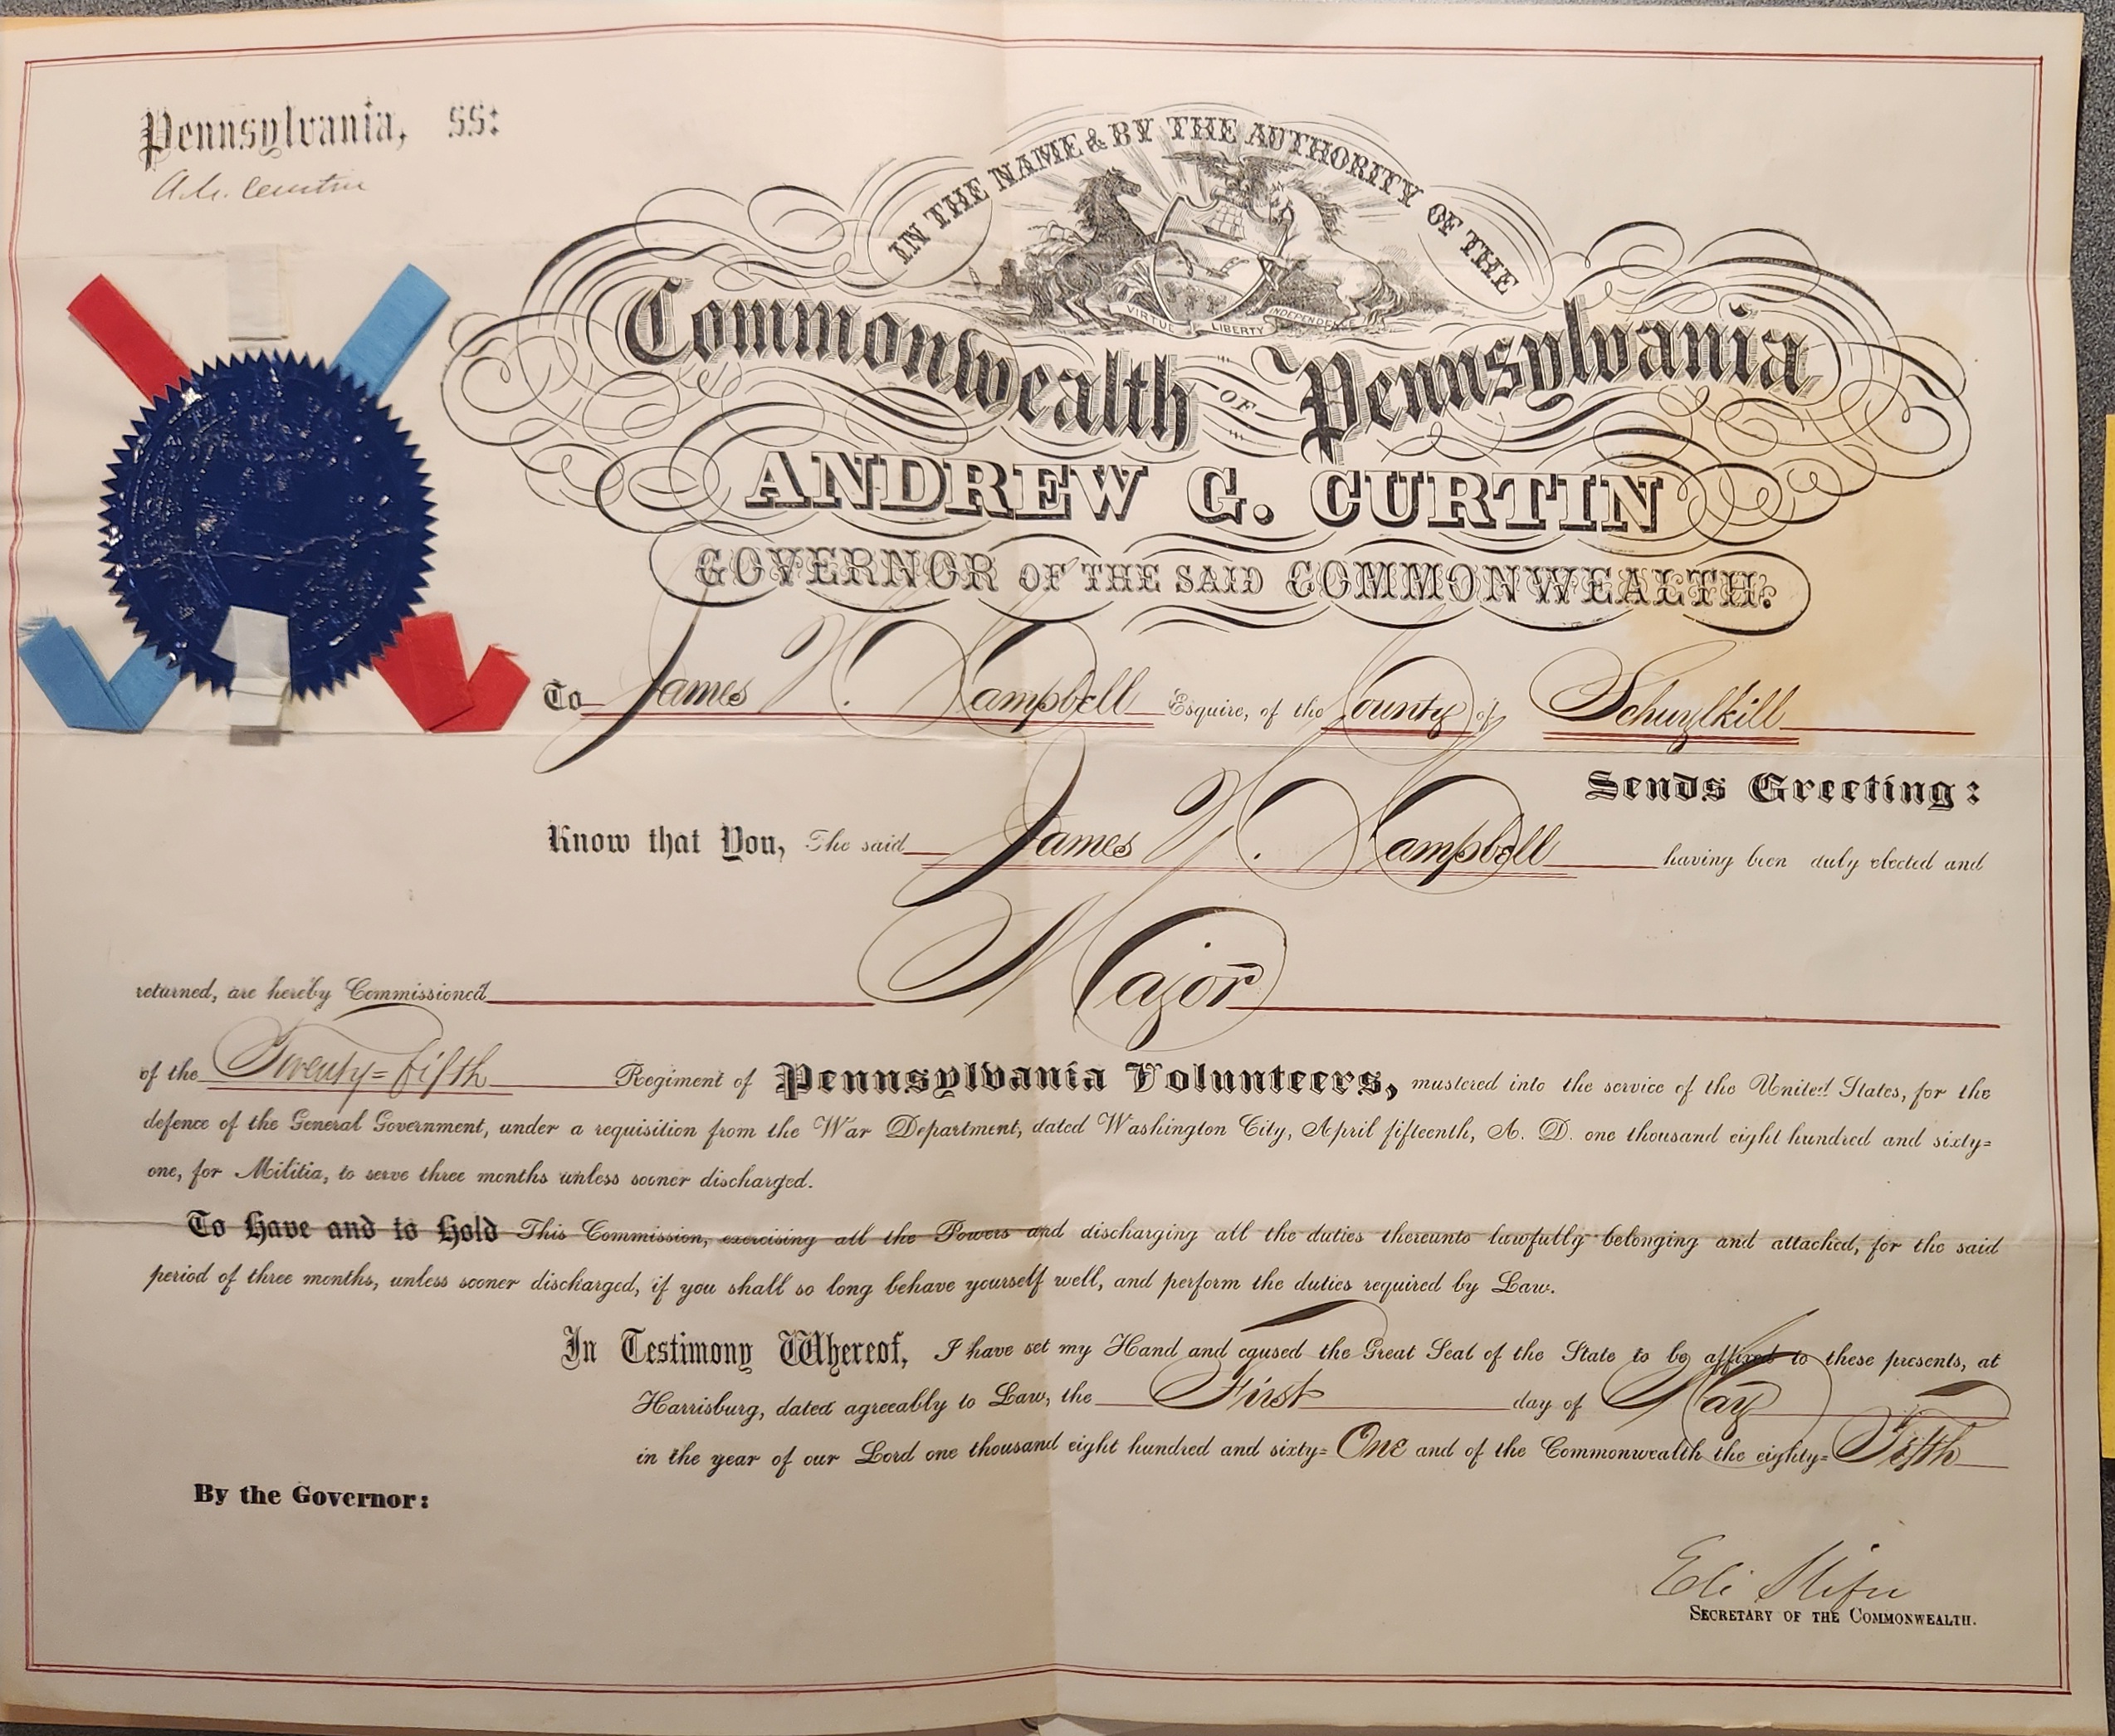 Pennsylvania, SS:
A. G. Curtin
IN THE NAME & BY THE AUTHORITY OF THE
VIRTUE LIBERTY INDEPENDENCE
Commonwealth OF Pennsylvania
ANDREW G. CURTIN
GOVERNOR OF THE SAID COMMONWEALTH.
To James H. Campbell Esquire, of the County of Schuylkill
Sends Greeting:
Know that You, The said James H. Campbell having been duly elected and
returned, are hereby Commissioned Major
of the Twenty=Fifth Regiment of Pennsylvania Volunteers, mustered into the service of the United States, for the
defence of the General Government, under a requisition from the War Department, dated Washington City, April fifteenth, A. D. one thousand eight hundred and sixty=
one, for Militia, to serve three months unless sooner discharged.
To Have and to Hold This Commission, exercising all the Powers and discharging all the duties thereunto lawfully belonging and attached, for the said
period of three months, unless sooner discharged, if you shall so long behave yourself well, and perform the duties required by Law.
In Testimony Whereof, I have set my Hand and caused the Great Seal of the State to be affixed to these presents, at
Harrisburg, dated agreeably to Law, the First day of May
in the year of our Lord one thousand eight hundred and sixty= One and of the Commonwealth the eighty= Fifth
By the Governor:
Eli Slifer
SECRETARY OF THE COMMONWEALTH.